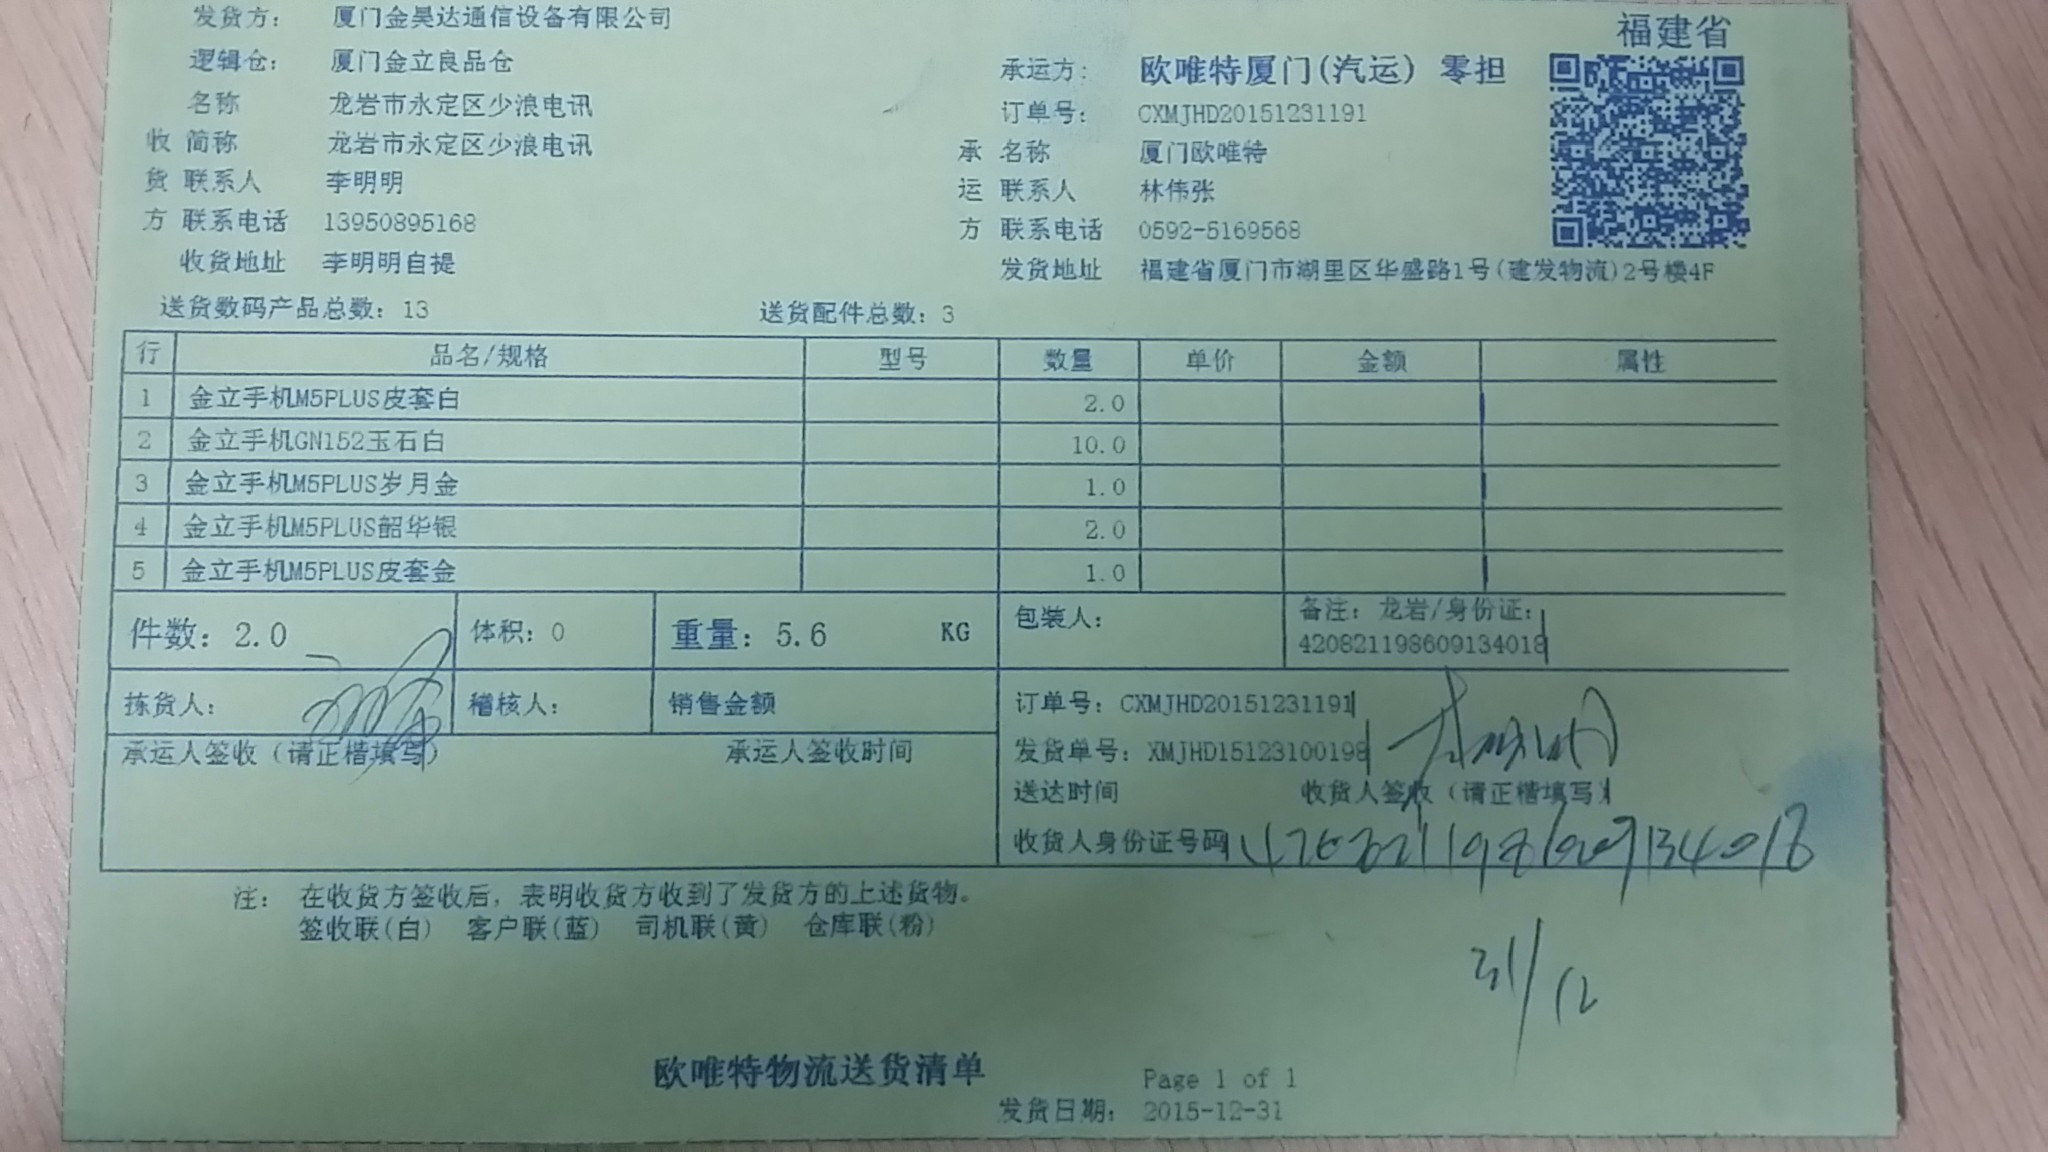 福建省
发货方： 厦门金昊达通信设备有限公司
逻辑仓： 厦门金立良品仓
承运方： 欧唯特厦门(汽运) 零担
名称 龙岩市永定区少浪电讯
订单号： CXMJHD20151231191
收 简称 龙岩市永定区少浪电讯
承 名称 厦门欧唯特
货 联系人 李明明
运 联系人 林伟张
方 联系电话 13950895168
方 联系电话 0592-5169568
收货地址 李明明自提
发货地址 福建省厦门市湖里区华盛路1号(建发物流)2号楼4F
送货数码产品总数：13 送货配件总数：3
行 品名/规格 型号 数量 单价 金额 属性
1 金立手机M5PLUS皮套白 2.0
2 金立手机GN152玉石白 10.0
3 金立手机M5PLUS岁月金 1.0
4 金立手机M5PLUS韶华银 2.0
5 金立手机M5PLUS皮套金 1.0
件数：2.0 体积：0 重量：5.6 KG 包装人： 备注：龙岩/身份证：
420821198609134018
拣货人： 稽核人： 销售金额 订单号：CXMJHD20151231191
承运人签收（请正楷填写） 承运人签收时间 发货单号：XMJHD15123100198
送达时间 收货人签收（请正楷填写）
收货人身份证号码 420821198609134018
注： 在收货方签收后，表明收货方收到了发货方的上述货物。
签收联(白) 客户联(蓝) 司机联(黄) 仓库联(粉)
31/12
欧唯特物流送货清单 Page 1 of 1
发货日期： 2015-12-31